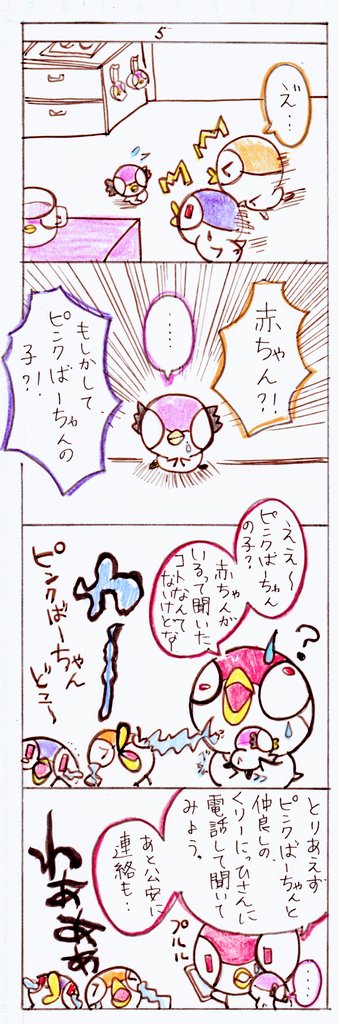 5
え"…
赤ちゃん?!
……
もしかして
ピンクばーちゃんの
子?!
ええ〜
ピンクばーちゃん
の子?
赤ちゃんが
いるって聞いた
コトなんて
ないけどな
?
わー
ピンクばーちゃん
どこ〜
とりあえず
ピンクばーちゃんと
仲良しの、
くりーにっひさんに
電話して聞いて
みよう。
あと公安に
連絡も…
プルルル
……
わぁぁぁぁ